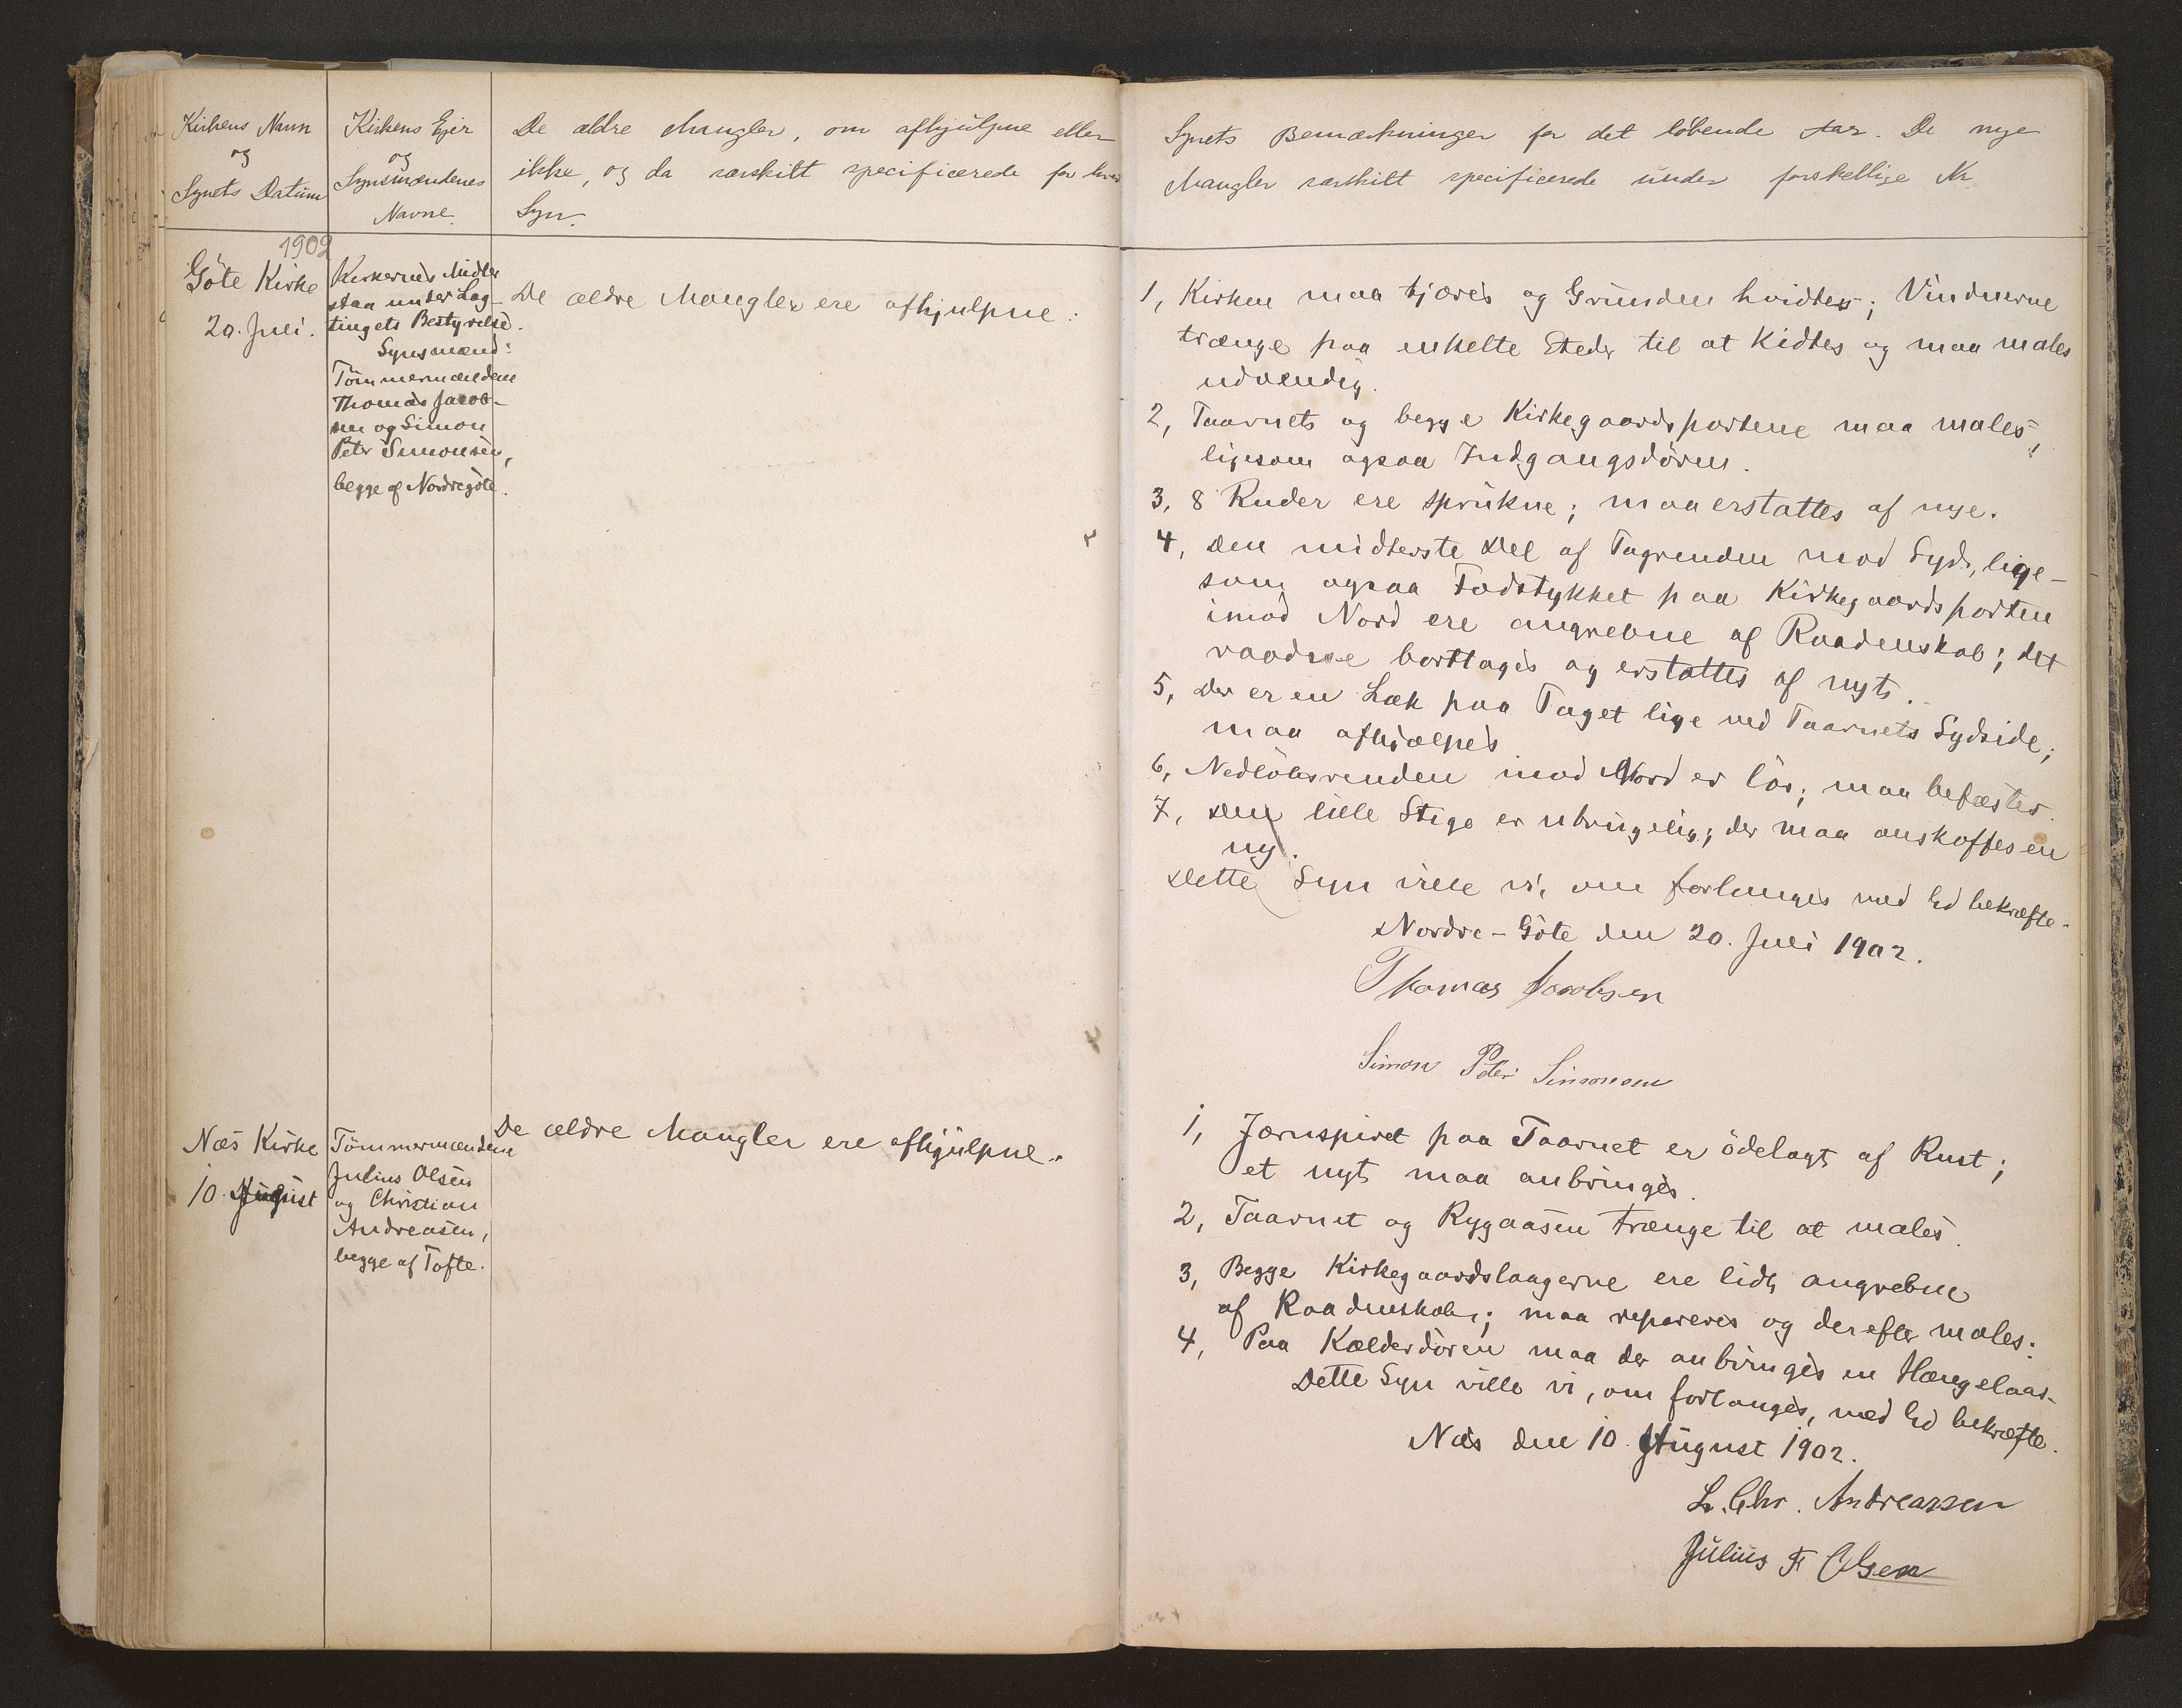 Kirkens Navn
og
Synets Datum
Kirkens Ejer
og
Synsmændenes
Navne.
De ældre Mangler, om afhjulpne eller
ikke, og da særskilt specificerede for hvert
Syn.
Synets Bemærkninger for det löbende Aar. De nye
Mangler særskilt specificerede under forskellige Nr.
1902
Göte Kirke
20. Juli.
Kirkernes Midler
staa under Lag-
tingets Bestyrelse.
Synsmænd:
Tömmermændene
Thomas Jacob-
sen og Simon
Peter Simonsen,
begge af Nordregöte.
De ældre Mangler ere afhjulpne.
1, Kirken maa tjæres og Grunden hvidtes; Vinduerne
trænge paa enkelte Steder til at Kidtes og maa males
udvendig.
2, Taarnets og begge Kirkegaardsportene maa males,
ligesom ogsaa Indgangsdören.
3, 8 Ruder ere sprukne; maa erstattes af nye.
4, Den midterste Del af Tagrenden mod Syd, lige-
som ogsaa Fodstykket paa Kirkegaardsporten
imod Nord ere angrebne af Raadenskab; det
raadne borttages og erstattes af nyt.
5, Der er en Læk paa Taget lige ved Taarnets Sydside;
maa afhjælpes.
6, Nedlöbsrenden imod Nord er lös; maa befæstes.
7, Den lille Stige er ubrugelig; der maa anskaffes en
ny.
Dette Syn ville vi, om forlanges med Ed bekræfte.
Nordre-Göte den 20. Juli 1902.
Thomas Jacobsen
Simon Peter Simonsen
Næs Kirke
10. August
Tömmermændene
Julius Olsen
og Christian
Andreasen,
begge af Tofte.
De ældre Mangler ere afhjulpne.
1, Jærnspiret paa Taarnet er ödelagt af Rust;
et nyt maa anbringes.
2, Taarnet og Rygaasen trænge til at males.
3, Begge Kirkegaardslaagerne ere lidt angrebne
af Raadenskab; maa repareres og derefter males.
4, Paa Kælderdören maa der anbringes en Hængelaas.
Dette Syn ville vi, om forlanges, med Ed bekræfte.
Næs den 10. August 1902.
L. Chr. Andreassen
Julius F Olsen